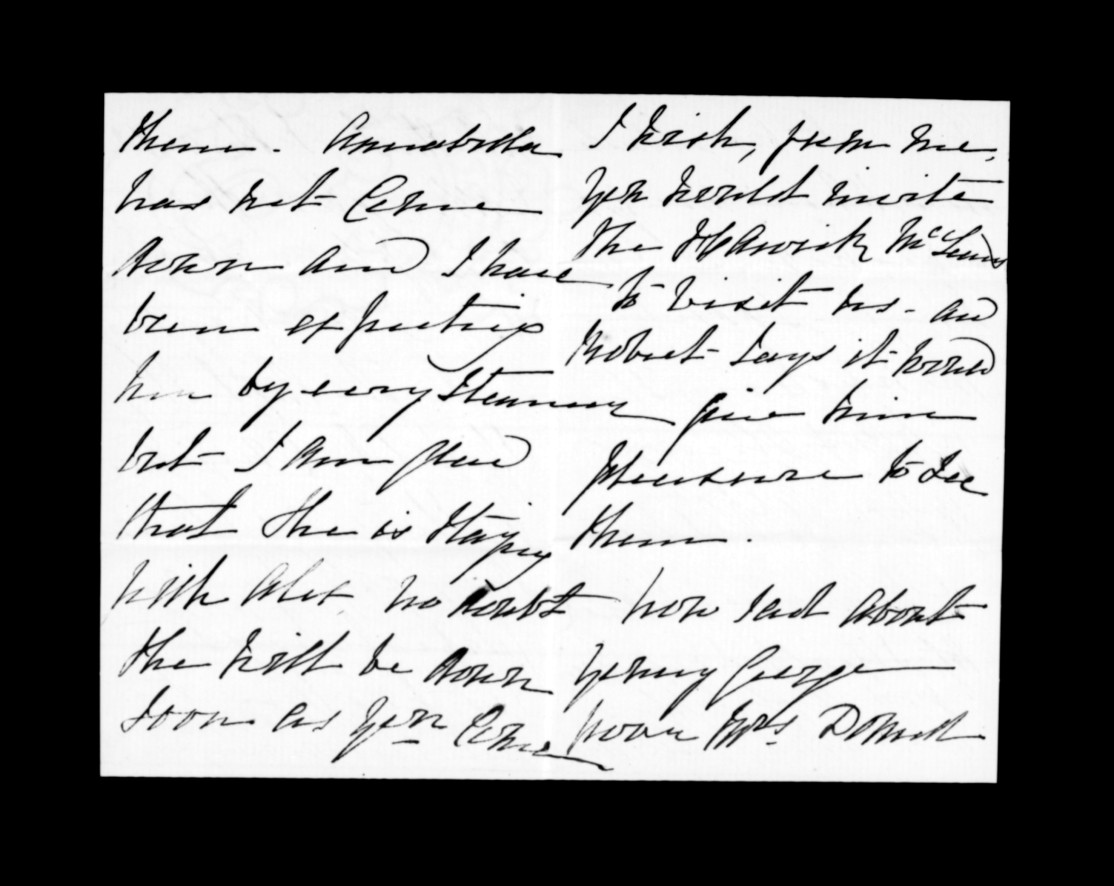 them. Annabella
has not Come
down and I have
been expecting
her by every Steamer
but I am glad
that She is Staying
with Alex. no doubt
She will be down
Soon as you Come
I wish, from me,
you would invite
the Hawick McLeans
to visit us. and
Robert Says it would
give him
pleasure to See
them.
how sad about
young George
poor Mrs Donald